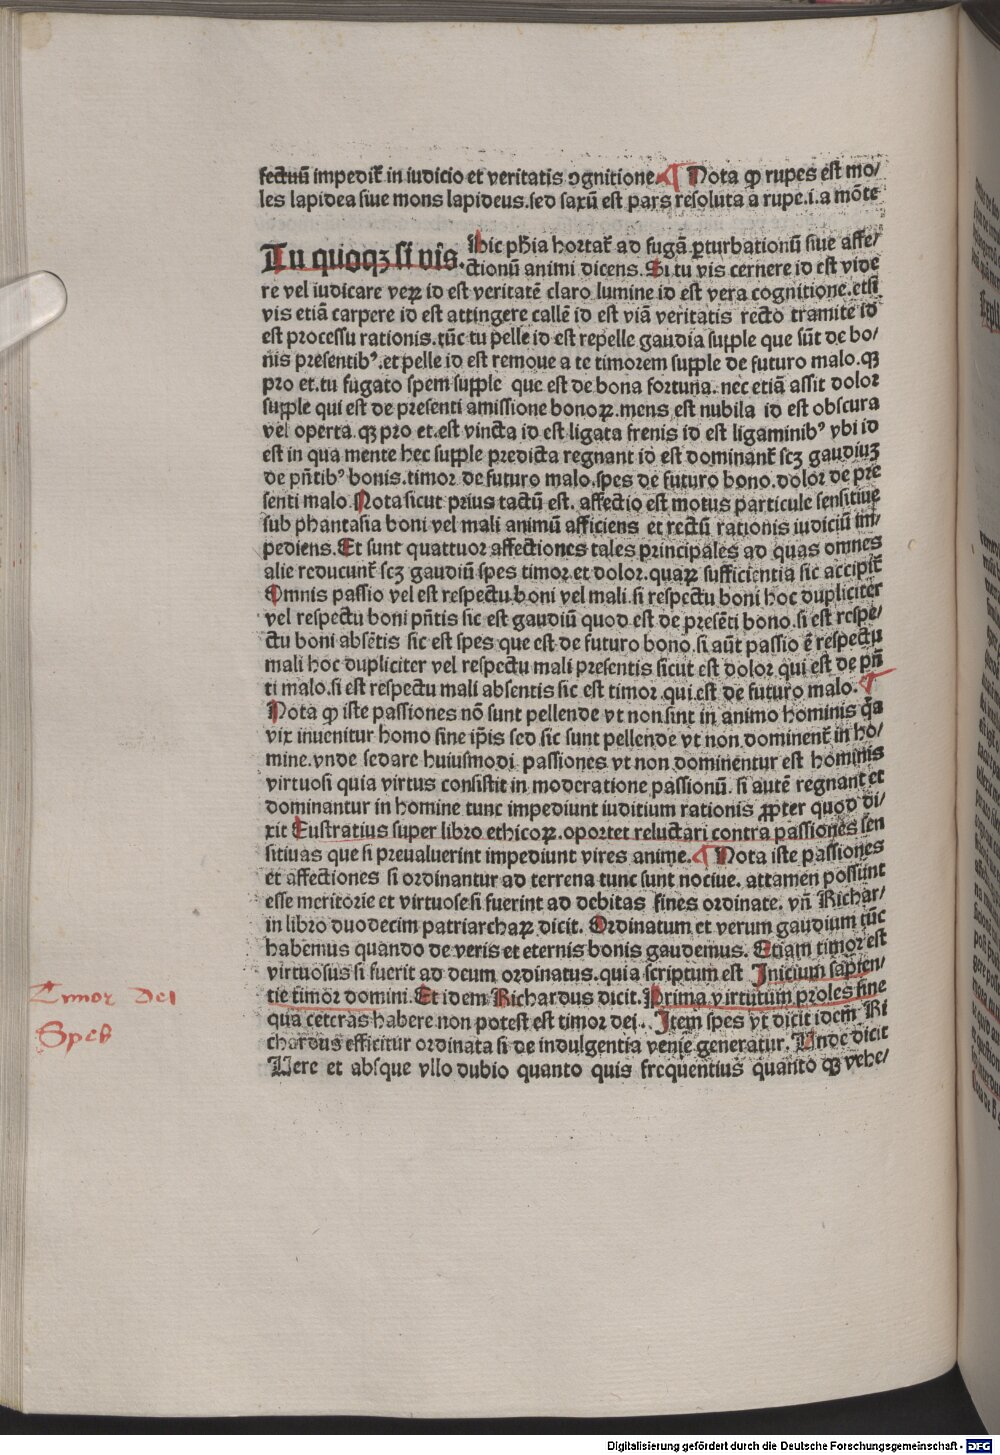 fectuū impedit᷑ in iudicio et veritatis ꝯgnitione. ¶ Nota ꝙ rupes est mo/
les lapidea siue mons lapideus.sed saxū est pars resoluta a rupe.i.a mōte
Tu quoqꝫ si vis. Hic phia hortat᷑ ad fugā ꝑturbationū siue affe/
ctionū animi dicens. Si tu vis cernere id est vide
re vel iudicare veꝝ id est veritatē claro lumine id est vera cognitione.etsi
vis etiā carpere id est attingere callē id est viā veritatis recto tramite id
est processu rationis.tūc tu pelle id est repelle gaudia supple que sūt de bo/
nis presentibꝰ.et pelle id est remoue a te timorem supple de futuro malo.qꝫ
pro et.tu fugato spem supple que est de bona fortuna.nec etiā assit dolor
supple qui est de presenti amissione bonoꝝ.mens est nubila id est obscura
vel operta qꝫ pro et.est vincta id est ligata frenis id est ligaminibꝰ vbi id
est in qua mente hec supple predicta regnant id est dominant᷑ scꝫ gaudiuꝫ
de pn̄tibꝰ bonis.timor de futuro malo.spes de futuro bono.dolor de pre
senti malo. Nota sicut prius tactū est. affectio est motus particule sensitiue
sub phantasia boni vel mali animū afficiens et rectū rationis iudiciū im/
pediens. Et sunt quattuor affectiones tales principales ad quas omnes
alie reducunt᷑ scꝫ gaudiū spes timor et dolor.quaꝝ sufficientia sic accipit᷑
Omnis passio vel est respectu boni vel mali.si respectu boni hoc dupliciter
vel respectu boni pn̄tis sic est gaudiū quod est de presēti bono.si est respe/
ctu boni absētis sic est spes que est de futuro bono.si aūt passio ē respectu
mali hoc dupliciter vel respectu mali presentis sicut est dolor qui est de pn̄
ti malo.si est respectu mali absentis sic est timor qui est de futuro malo. ¶
Nota ꝙ iste passiones nō sunt pellende vt non sint in animo hominis q̄a
vix inuenitur homo sine ip̄is sed sic sunt pellende vt non dominent᷑ in ho/
mine.vnde sedare huiusmodi passiones vt non dominentur est hominis
virtuosi quia virtus consistit in moderatione passionū. si autē regnant et
dominantur in homine tunc impediunt iuditium rationis ꝓpter quod di/
xit Eustratius super libro ethicoꝝ.oportet reluctari contra passiones sen
sitiuas que si preualuerint impediunt vires anime. ¶ Nota iste passiones
et affectiones si ordinantur ad terrena tunc sunt nociue. attamen possunt
esse meritorie et virtuose si fuerint ad debitas fines ordinate. vn̄ Richar/
in libro duodecim patriarchaꝝ dicit. Ordinatum et verum gaudium tūc
habemus quando de veris et eternis bonis gaudemus. Etiam timor est
virtuosus si fuerit ad deum ordinatus.quia scriptum est Inicium sapien/
tie timor domini. Et idem Richardus dicit. Prima virtutum proles sine
qua ceteras habere non potest est timor dei.. Item spes vt dicit idem Ri
chardus efficitur ordinata si de indulgentia venie generatur. Unde dicit
Vere et absque vllo dubio quanto quis frequentius quanto qꝫ vehe/
Timor Dei
Spes
Digitalisierung gefördert durch die Deutsche Forschungsgemeinschaft - DFG